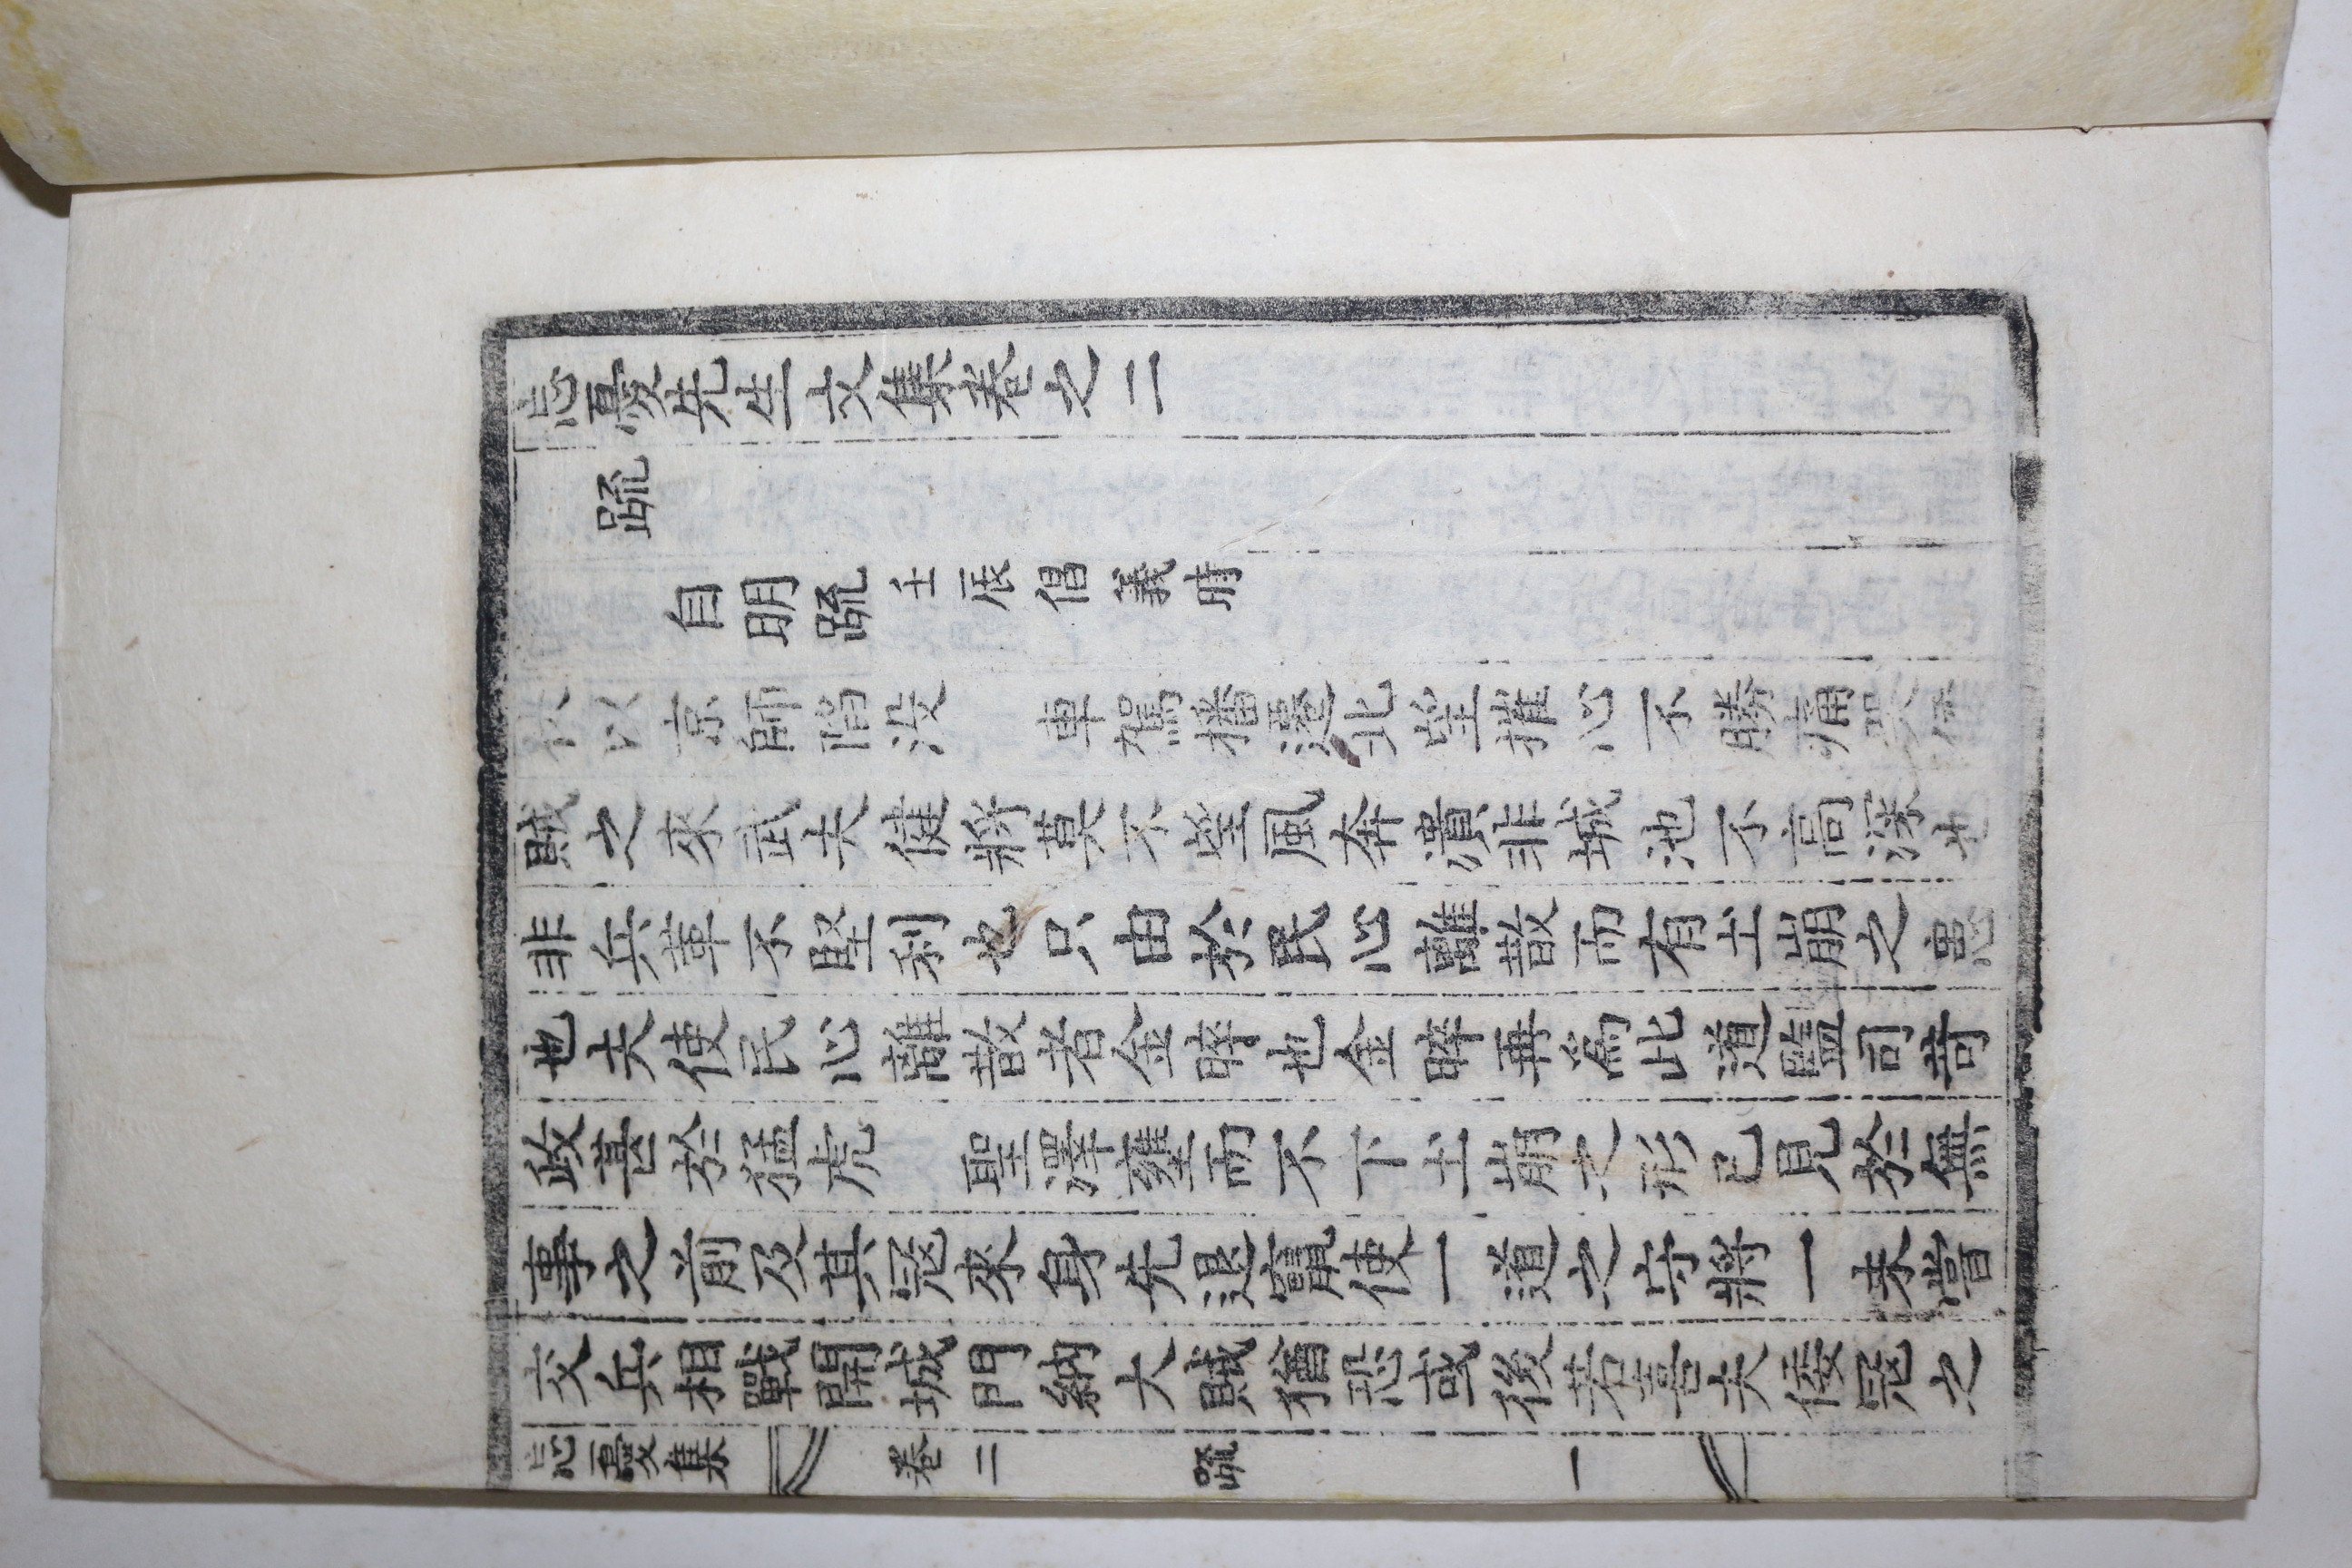 忘憂先生文集卷之二
疏
自明疏壬辰倡義時
伏以京師陷没 車駕播遷北望摧心不勝痛哭倭
賊之來武夫健將莫不望風奔潰非城池不高深也
非兵革不堅利也只由於民心離散而有土崩之患
也夫使民心離散者金晬也金晬再爲此道監司苛
政甚於猛虎 聖澤壅而不下土崩之形已見於無
事之前及其冦來身先退竄使一道之守將一未嘗
交兵相戰開城門納大賊猶恐或後若喜夫倭冦之
忘憂集 卷二 疏 一